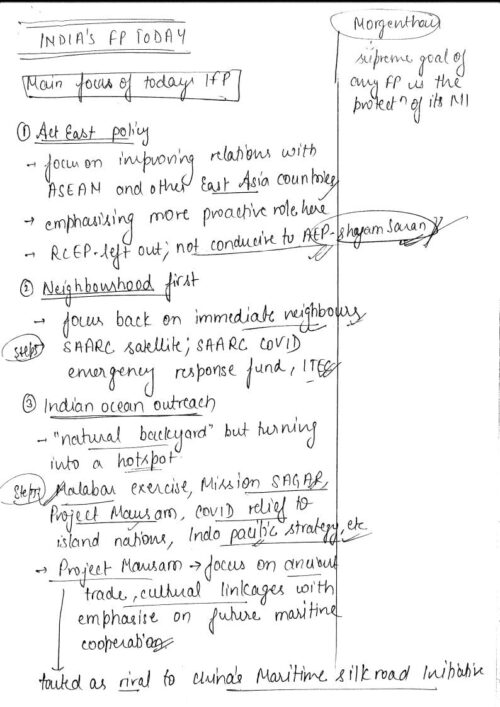 INDIA'S FP TODAY
Main focus of today's IFP
① Act East policy
→ focus on improving relations with
ASEAN and other East Asia countries
→ emphasising more proactive role here
→ RCEP-left out; not conducive to AEP-Shayam Saran
② Neighbourhood first
→ focus back on immediate neighbours
Steps SAARC satellite; SAARC COVID
emergency response fund, ITEC
③ Indian ocean outreach
→ "natural backyard" but turning
into a hotspot
Steps Malabar exercise, Mission SAGAR,
Project Mausam, COVID relief to
island nations, Indo pacific strategy, etc
→ Project Mausam → focus on ancient
trade, cultural linkages with
emphasise on future maritime
cooperation
touted as rival to China's Maritime silk road Initiative
Morgenthau
supreme goal of
any FP is the
protectⁿ of its NI